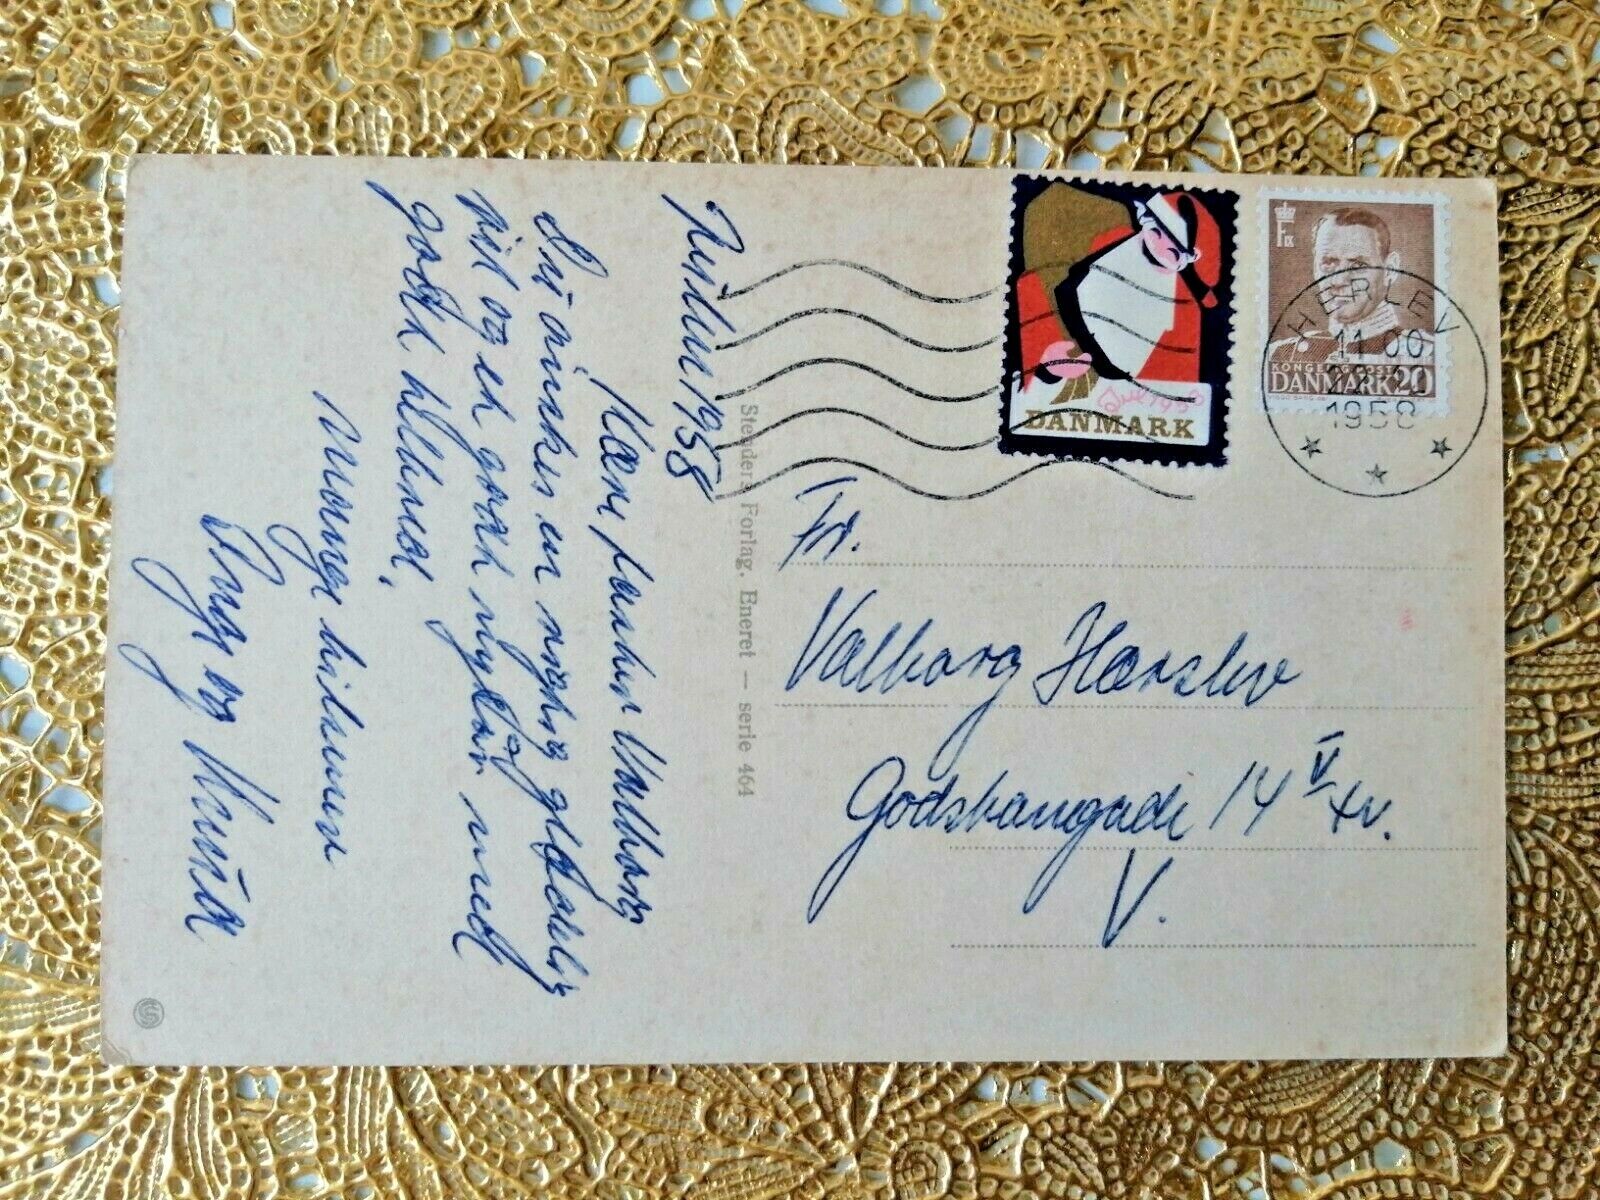 Julen 1958
Kære tante Valborg
Du ønskes en rigtig glædelig
jul og et godt nytår med
godt helbred.
Mange hilsner
Inge og Svend
Stenders Forlag. Eneret — serie 464
Jul 1958
DANMARK
F IX
KONGELIG POST
DANMARK 20
HERLEV
11.00
1958
Fr.
Valborg Harslev
Godsbanegade 14 V tv.
V.